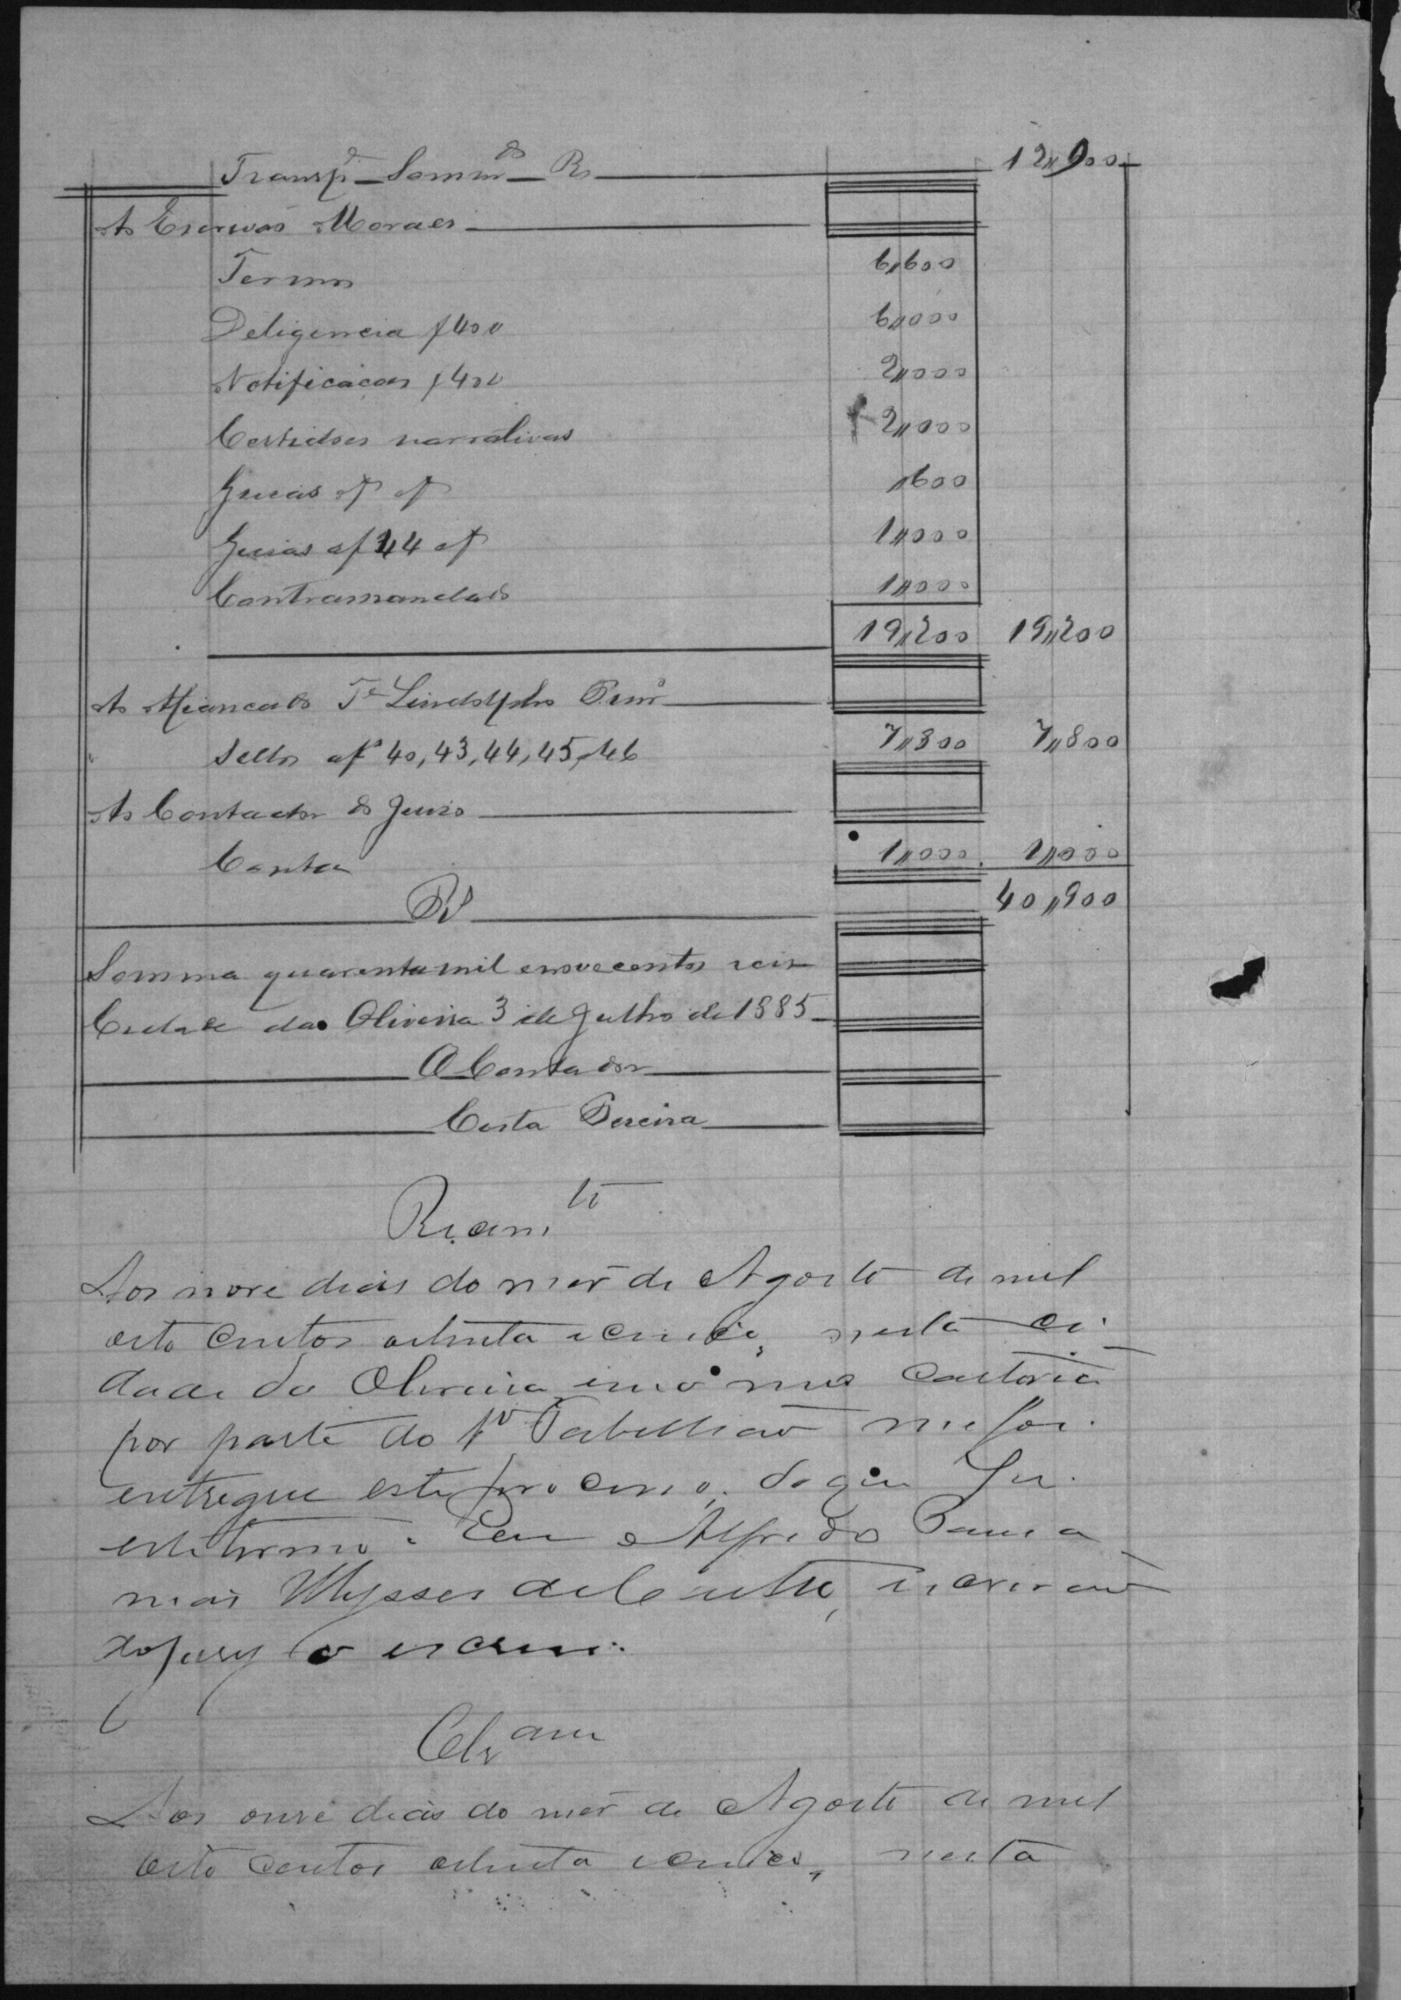 Transp.e Somm.do Rs 12,,900
Ao Escrivão Moraes
Termos 6,,600
Deligencia f 40 v 6,,000
Notificações f 42 v 2,,000
Certidões narrativas 2,,000
Guias af af ,,600
Guias af 44 af 1,,000
Contramandado 1,,000
19,,200 19,,200
Ao Afiançado Te Lindolpho
Sellos af 40, 43, 44, 45, 46 7,,800 7,,800
Ao Contador do Juizo
Conta 1,,000 1,,000
Rs 40,,900
Somma quarenta mil e novecentos reis
Cidade da Oliveira 3 de Julho de 1885
O Contador
Costa Pereira
Recam.to
Aos nove dias do mes de Agosto de mil
oito centos oitenta e cinco, nesta ci-
dade da Oliveira em o meo cartorio
por parte do 1º Tabellião me foi
entregue este processo, do que fiz
este termo. Eu Alfredo
Ulysses de Castro, escrivão
do jury o escrevi.
Clsam
Aos onze dias do mes de Agosto de mil
oito centos oitenta e cinco, nesta